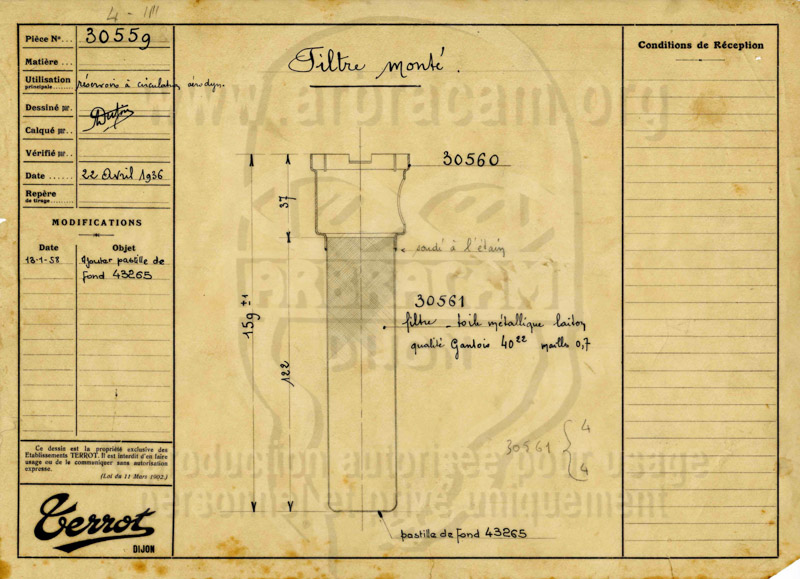 4 - 1M
Pièce Nº... 30559
Matière ...
Utilisation
principale........ réservoirs à circulation aérodyn.
Dessiné pr.
Calqué pr..
Vérifié pr..
Date ...... 22 Avril 1936
Repère
de tirage.........
MODIFICATIONS
Date Objet
13-1-58 Ajouter pastille de
fond 43265
Ce dessin est la propriété exclusive des
Etablissements TERROT. Il est interdit d'en faire
usage ou de le communiquer sans autorisation
expresse.
(Loi du 11 Mars 1902.)
Terrot
DIJON
Filtre monté.
30560
37
soudé à l'étain
159 ±1
122
30561
filtre - toile métallique laiton
qualité Gantois 40 22 mailles 0,7
30561 { 4
4
pastille de fond 43265
Conditions de Réception
www.arbracam.org
ARBRACAM
DIJON
Reproduction autorisée pour usage
personnel et privé uniquement